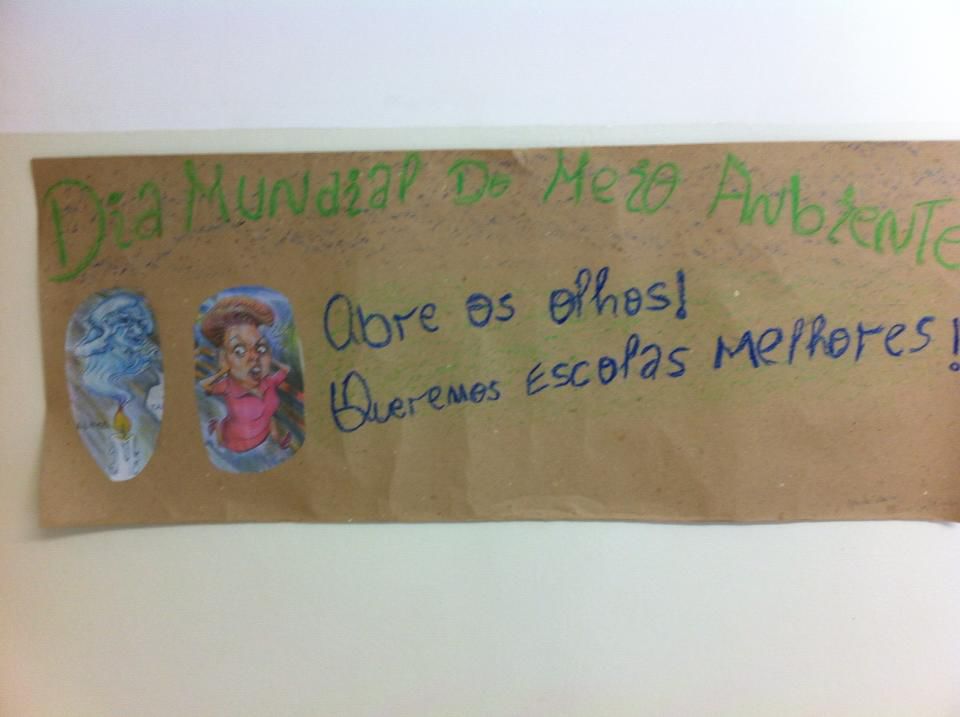 Dia Mundial Do Meio Ambiente
Abre os olhos!
Queremos Escolas Melhores!